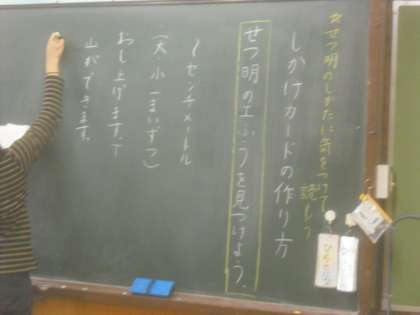 ☆せつ明のしかたに気をつけて
読もう
しかけカードの作り方
せつ明の工ふうを見つけよう。
～センチメートル
(大、小一まいずつ)
おし上げます。↑
山ができます。